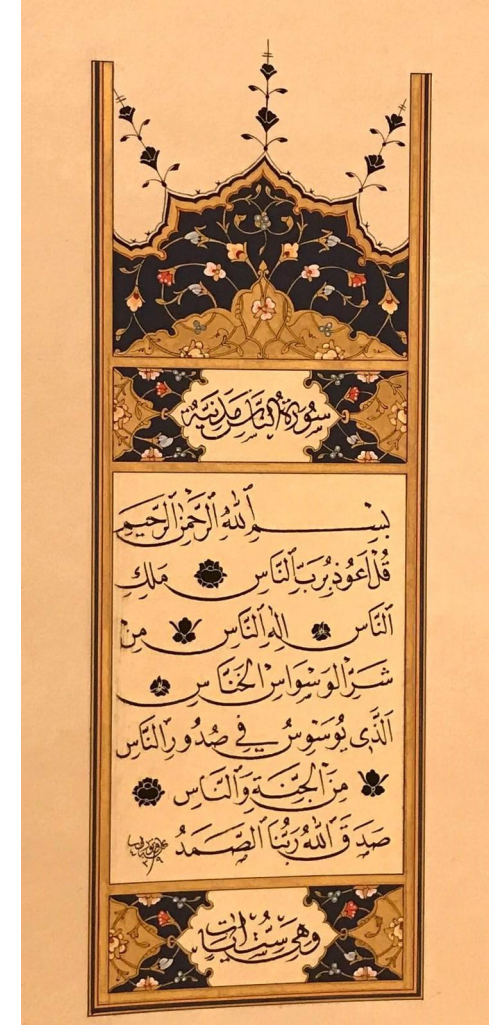 سُورَةُ النَّاسِ مَدَنِيَّةٌ
بِسْمِ ٱللّٰهِ ٱلرَّحْمٰنِ ٱلرَّحِيمِ
قُلْ اَعُوذُ بِرَبِّ ٱلنَّاسِ مَلِكِ
ٱلنَّاسِ اِلٰهِ ٱلنَّاسِ مِنْ
شَرِّ ٱلْوَسْوَاسِ ٱلْخَنَّاسِ
اَلَّذِى يُوَسْوِسُ فِى صُدُورِ ٱلنَّاسِ
مِنَ ٱلْجِنَّةِ وَٱلنَّاسِ
صَدَقَ ٱللّٰهُ رَبُّنَا ٱلصَّمَدُ
وَهِىَ سِتُّ اٰيَاتٍ